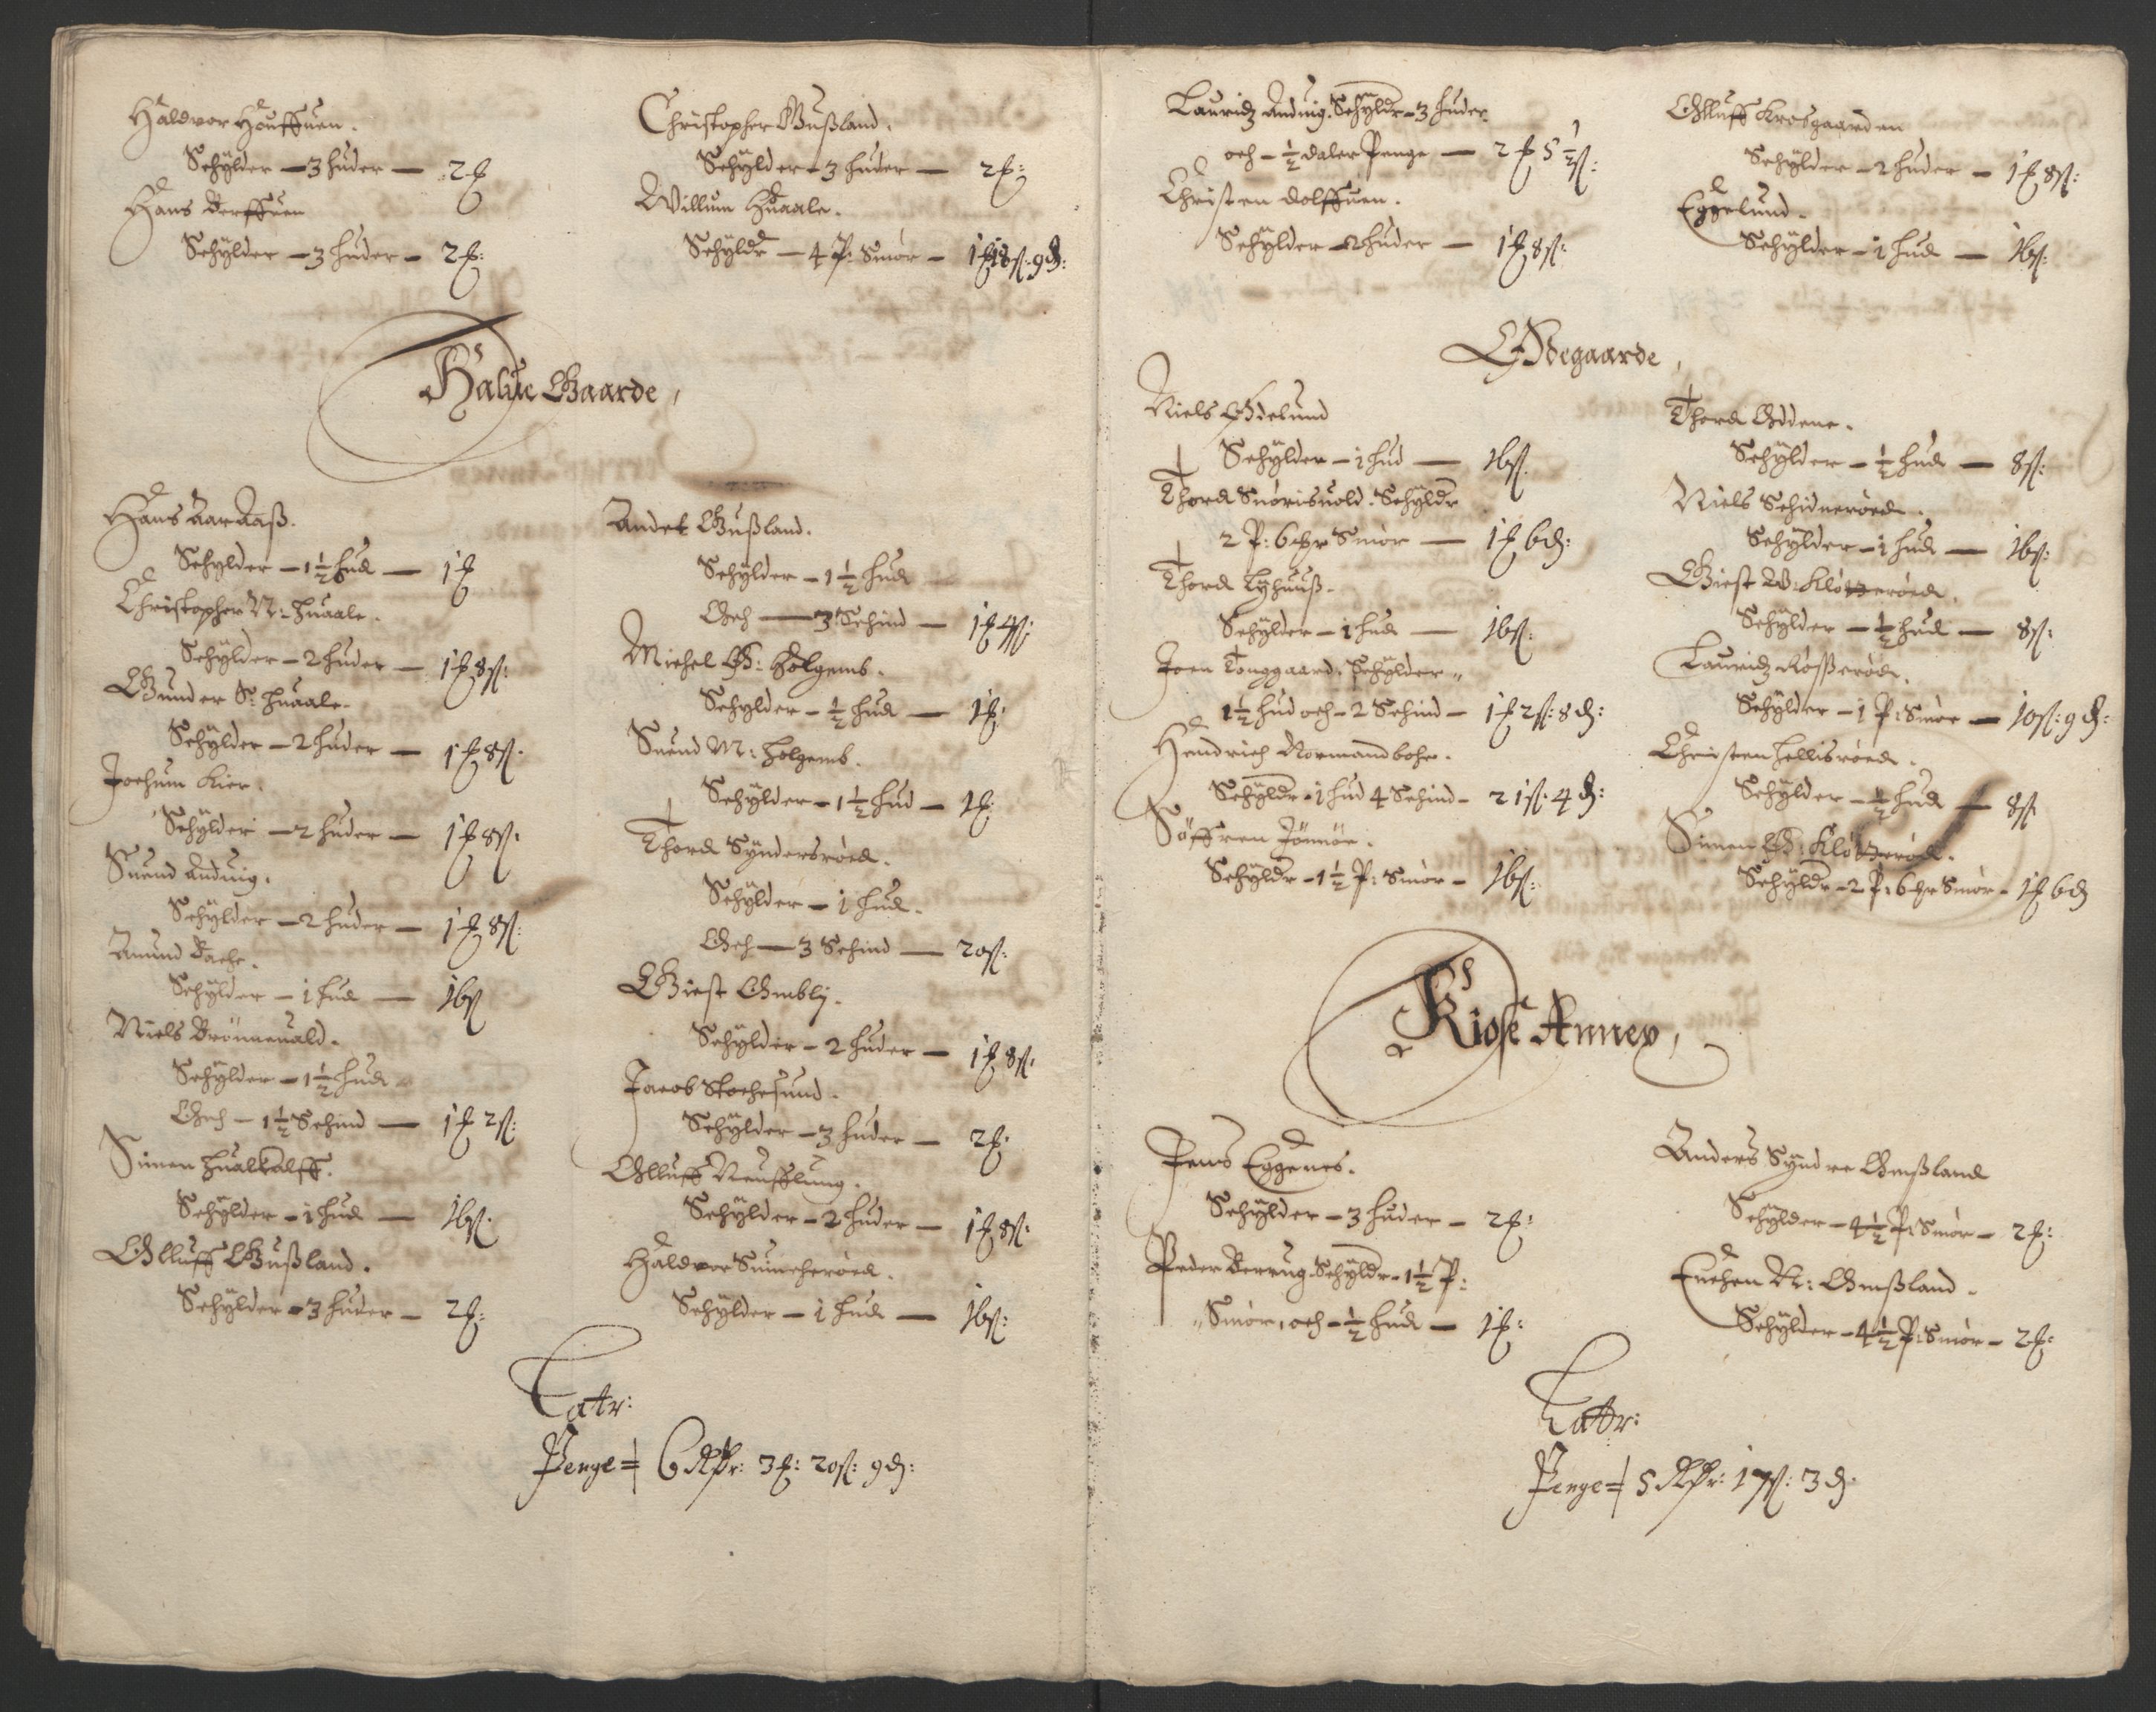 Haldvor Houffuen.
Schÿlder – 3 huder – 2 ₰
Hans Berffuen
Schÿlder – 3 huder – 2 ₰:
Christopher Gußland.
Schÿlder – 3 huder – 2 ₰:
Willum Huaale.
Schÿldr – 4 P: Smör – 1 ₰ 18 ß: 9 d:
Halue Gaarde,
Hans Aaraaß.
Schÿlder – 1½ hud – 1 ₰
Christopher N: Huaale.
Schÿlder – 2 huder – 1 ₰ 8 ß:
Gunder S: huaale.
Schÿlder – 2 huder – 1 ₰ 8 ß:
Jochum Kier.
Schÿlder – 2 huder – 1 ₰ 8 ß:
Suend Anduig.
Schÿlder – 2 huder – 1 ₰ 8 ß:
Amund Bache.
Schÿlder – 1 hud – 16 ß
Niels Brönneuald.
Schÿlder – 1½ hud
Och – 1½ Schind – 1 ₰ 2 ß:
Simen hualkalff.
Schÿlder – 1 hud – 16 ß:
Olluff Gußland.
Schÿlder – 3 huder – 2 ₰:
Andet Gußland.
Schÿlder – 1½ hud
Och – 3 Schind – 1 ₰ 4 ß:
Michel Ø: Holgemb.
Schÿlder – ½ hud – 1 ₰:
Suend M: Holgemb.
Schÿlder – 1½ hud – 1 ₰:
Thord Sÿndersröed.
Schÿlder – 1 hud.
Och – 3 Schind – 20 ß:
Giest Ombly.
Schÿlder – 2 huder – 1 ₰ 8 ß:
Jacob Stochesund.
Schÿlder – 3 huder – 2 ₰:
Olluff Neufflung.
Schÿlder – 2 huder – 1 ₰ 8 ß:
Haldvor Suincheröed.
Schÿlder – 1 hud – 16 ß:
Latr:
Penge = 6 Rdr: 3 ₰: 20 ß: 9 d:
Lauridz Anduig. Schÿldr – 3 huder
och – ½ daler Penge – 2 ₰ 5½ ß:
Christen Dolffuen.
Schÿlder – 2 huder – 1 ₰ 8 ß:
Olluff Krosgaarden
Schÿlder – 2 huder – 1 ₰ 8 ß:
Eggelund.
Schÿlder – 1 hud – 16 ß:
Ødegaarde,
Niels Ødelund
Schÿlder – 1 hud – 16 ß.
Thord Snörisuold. Schÿldr
2 P: 6 ... Smör – 1 ₰ 6 d:
Thord Lÿhuuß.
Schÿlder – 1 hud – 16 ß:
Joen Tonggaard. Schÿlder
1½ hud och – 2 Schind – 1 ₰ 2 ß: 8 d:
Hendrich Normandbohe.
Schÿldr – 1 hud 4 Schind – 21 ß: 4 d:
Söffren Jönnöe.
Schÿldr – 1½ P: Smör – 16 ß:
Thord Oddene.
Schÿlder – ½ hud – 8 ß:
Niels Schineröed.
Schÿlder – 1 hud – 16 ß:
Giest W: Klötteröed.
Schÿlder – ½ hud – 8 ß:
Lauridz Rößeröd.
Schÿlder – 1 P: Smör – 10 ß: 9 d:
Christen Hellisröed.
Schÿlder – ½ hud – 8 ß
Simen Ø: Klötteröd.
Schÿldr – 2 P: 6 ... Smör – 1 ₰ 6 d
Kiose Annex,
Jens Eggenes.
Schÿlder – 3 huder – 2 ₰:
Peder Berrug. Schÿldr – 1½ P:
Smör, och – ½ hud – 1 ₰:
Anders Sÿndre Omßland
Schÿlder – 4½ P: Smör – 2 ₰:
Euchen N: Omßland.
Schÿlder – 4½ P: Smör – 2 ₰:
Latr:
Penge = 5 Rdr: 17 ß: 3 d: